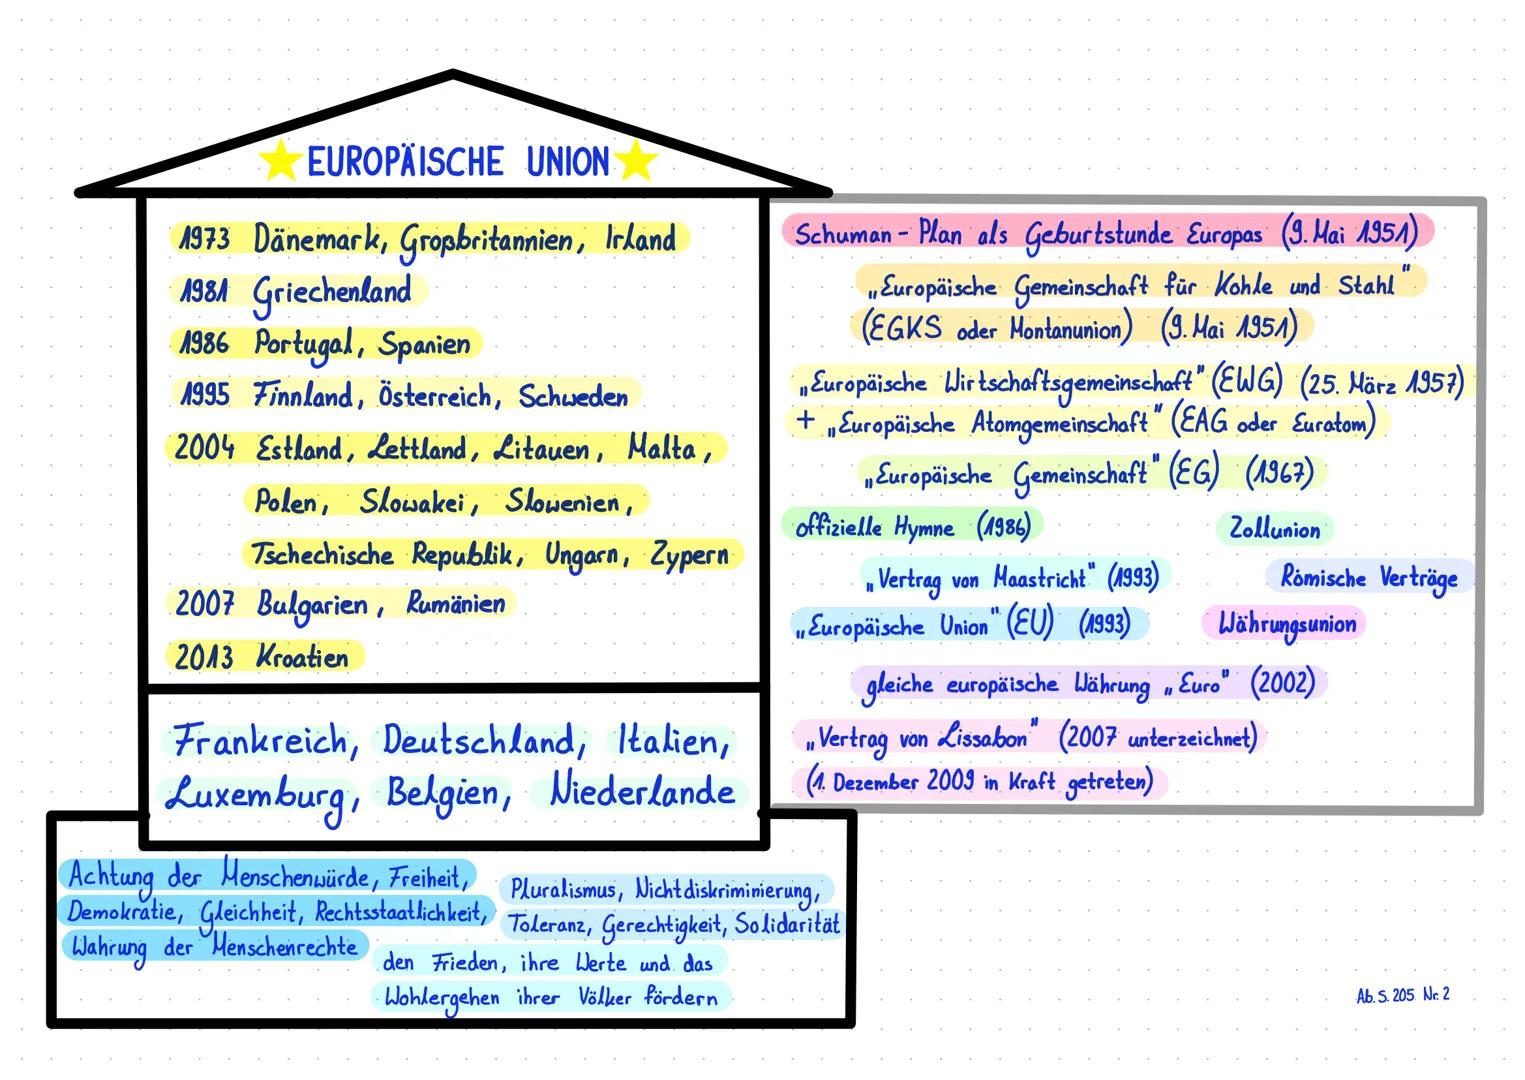 EUROPÄISCHE UNION
1973 Dänemark, Großbritannien, Irland
1981 Griechenland
1986 Portugal, Spanien
1995 Finnland, Österreich, Schweden
2004 Estland, Lettland, Litauen, Malta,
Polen, Slowakei, Slowenien,
Tschechische Republik, Ungarn, Zypern
2007 Bulgarien, Rumänien
2013 Kroatien
Frankreich, Deutschland, Italien,
Luxemburg, Belgien, Niederlande
Achtung der Menschenwürde, Freiheit,
Demokratie, Gleichheit, Rechtsstaatlichkeit,
Wahrung der Menschenrechte
Pluralismus, Nichtdiskriminierung,
Toleranz, Gerechtigkeit, Solidarität
den Frieden, ihre Werte und das
Wohlergehen ihrer Völker fördern
Schuman-Plan als Geburtstunde Europas (9. Mai 1951)
„Europäische Gemeinschaft für Kohle und Stahl"
(EGKS oder Montanunion) (9. Mai 1951)
„Europäische Wirtschaftsgemeinschaft" (EWG) (25. März 1957)
+ „Europäische Atomgemeinschaft" (EAG oder Euratom)
„Europäische Gemeinschaft" (EG) (1967)
offizielle Hymne (1986)
Zollunion
„Vertrag von Maastricht" (1993)
Römische Verträge
„Europäische Union" (EU) (1993)
Währungsunion
gleiche europäische Währung „Euro" (2002)
„Vertrag von Lissabon" (2007 unterzeichnet)
(1. Dezember 2009 in Kraft getreten)
Ab. S. 205 Nr. 2